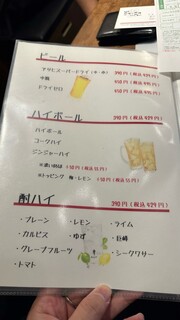 ビール
アサヒスーパードライ(中・小) 390円(税込429円)
中瓶 450円(税込495円)
ドライゼロ 450円(税込495円)
ハイボール 390円(税込429円)
ハイボール
コークハイ
ジンジャーハイ
※濃い目は +50円(税込55円)
※トッピング 梅・レモン +50円(税込55円)
酎ハイ 390円(税込429円)
・プレーン ・レモン ・ライム
・カルピス ・ゆず ・巨峰
・グレープフルーツ ・シークワサー
・トマト